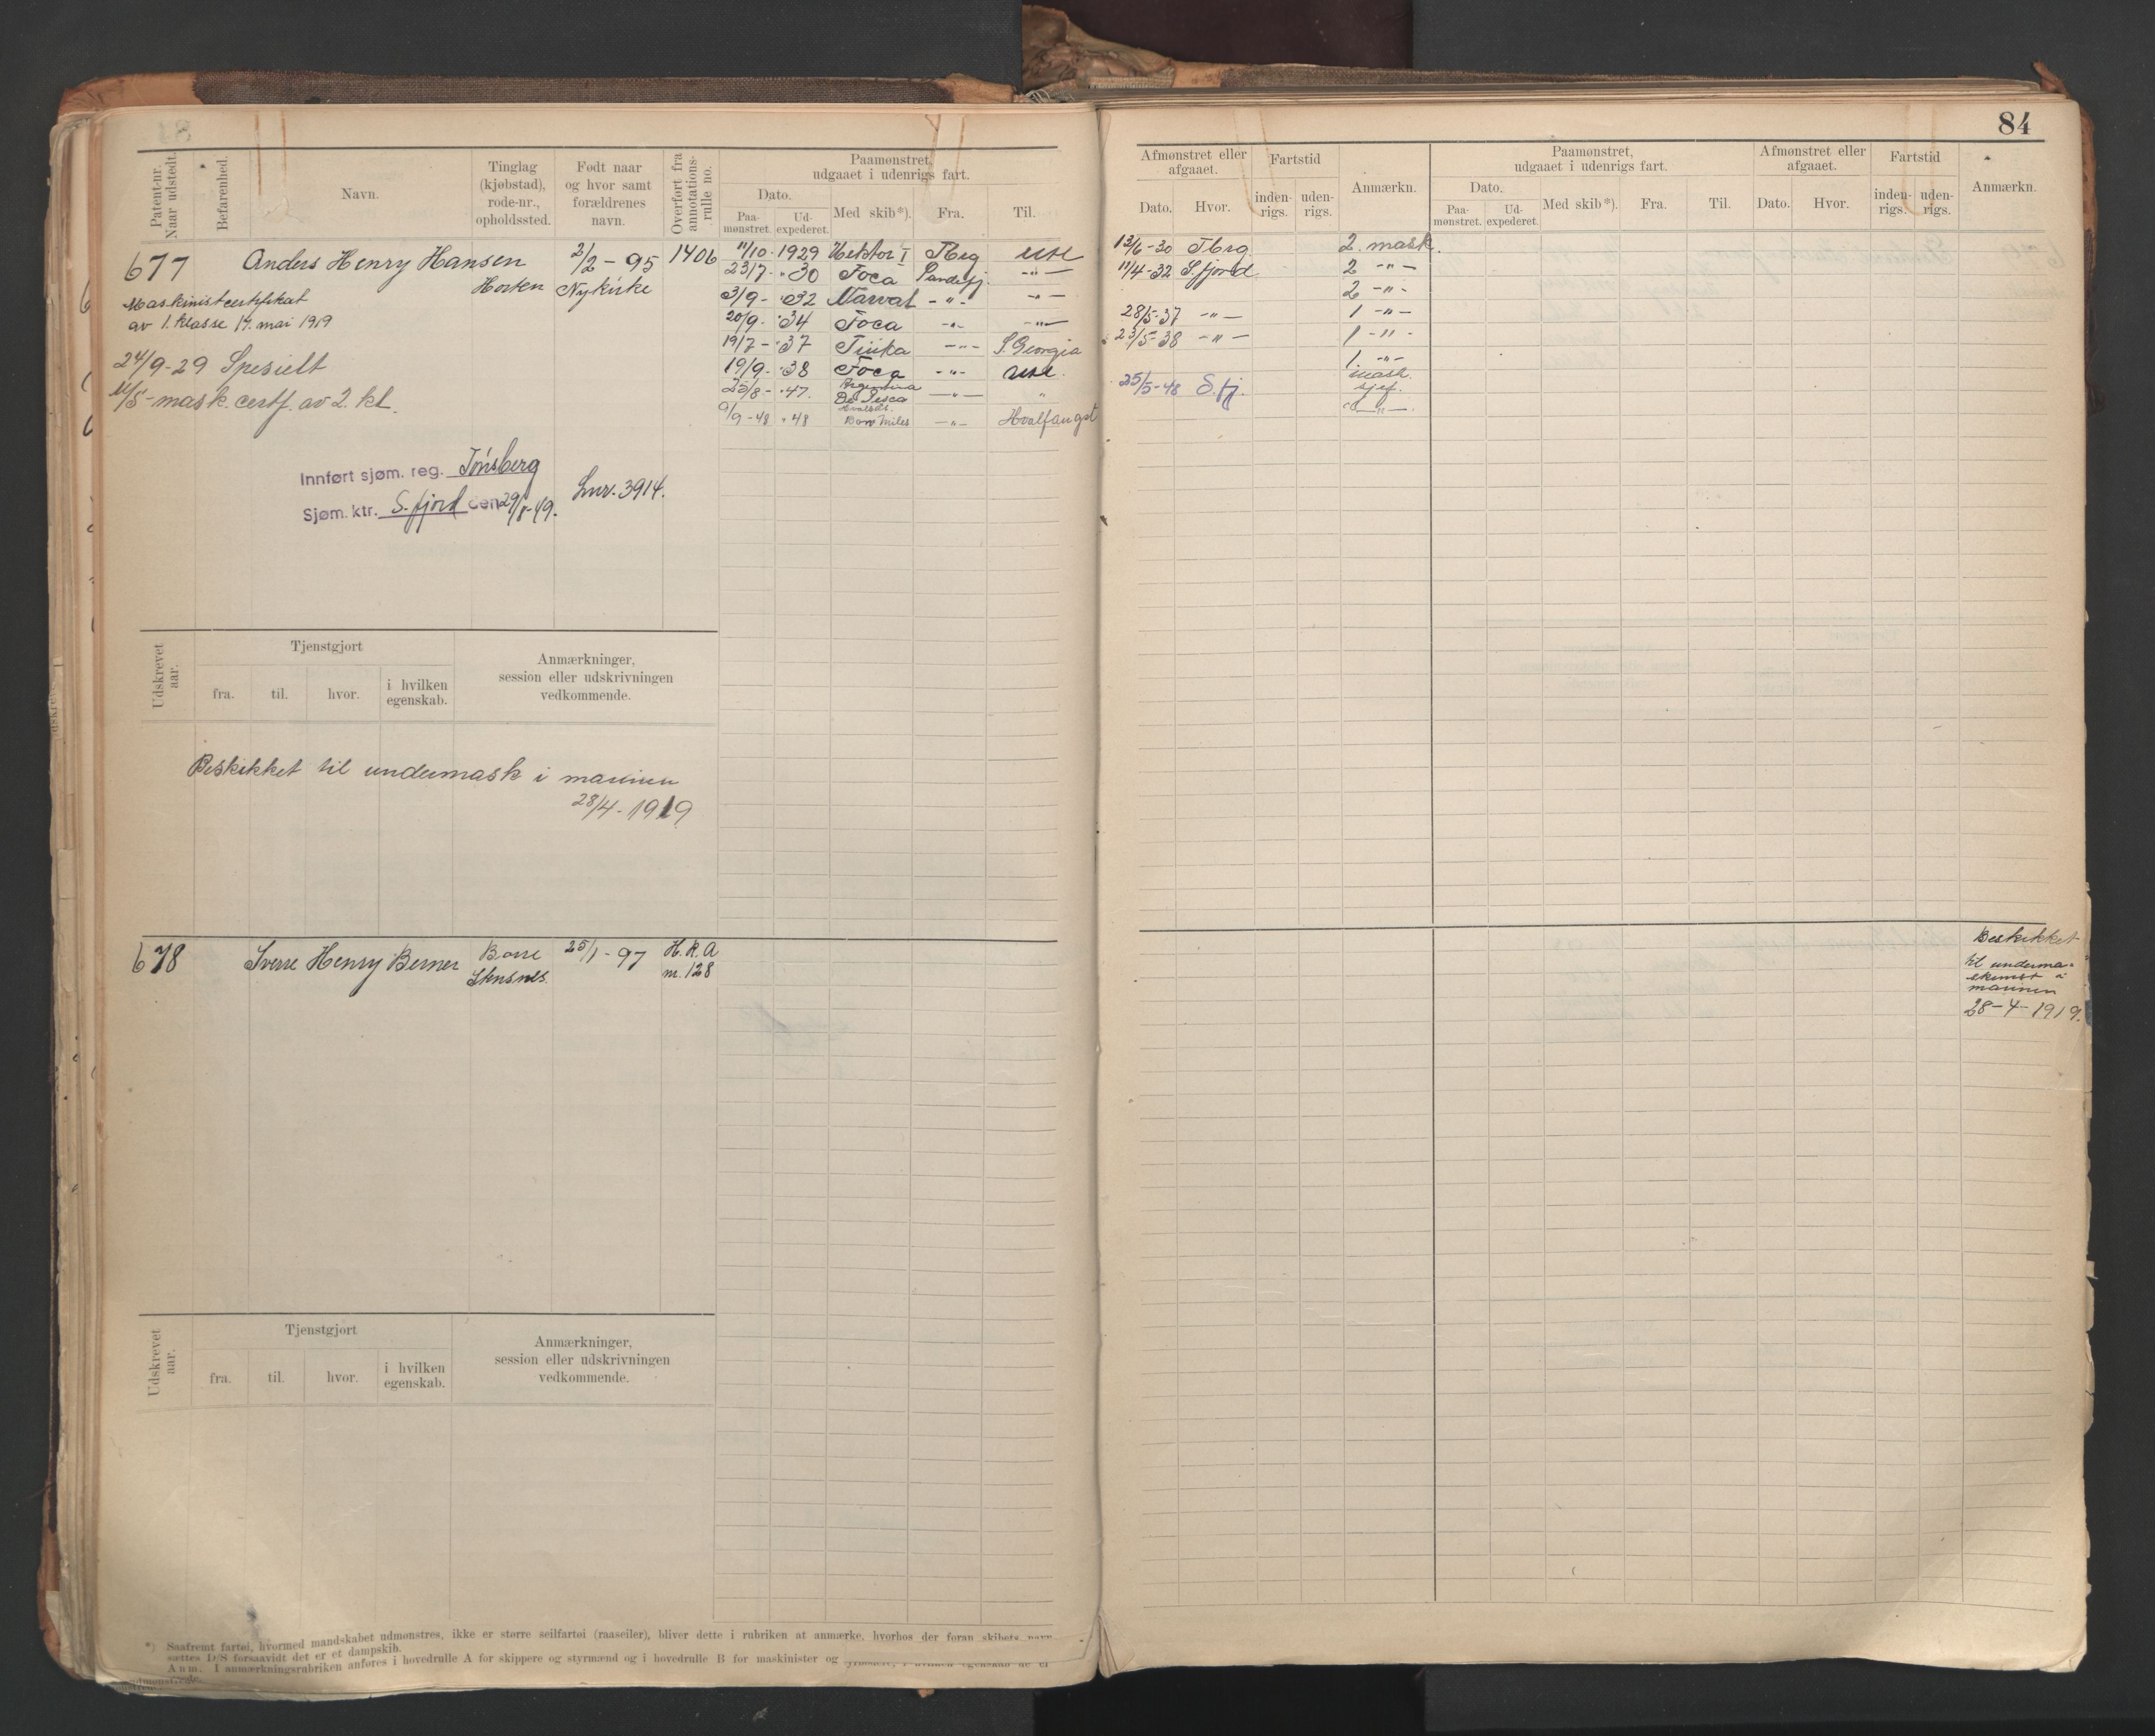 84
Patent-nr.
Naar udstedt.
Befarenhed.
Navn.
Tinglag
(kjøbstad),
rode-nr.,
opholdssted.
Født naar
og hvor samt
forældrenes
navn.
Overført fra
annotations-
rulle no.
Paamønstret,
udgaaet i udenrigs fart.
Dato.
Paa-
mønstret.
Ud-
expederet.
Med skib*).
Fra.
Til.
Afmønstret eller
afgaaet.
Dato.
Hvor.
Fartstid
inden-
rigs.
uden-
rigs.
Anmærkn.
Paamønstret,
udgaaet i udenrigs fart.
Dato.
Paa-
mønstret.
Ud-
expederet.
Med skib*).
Fra.
Til.
Afmønstret eller
afgaaet.
Dato.
Hvor.
Fartstid
inden-
rigs.
uden-
rigs.
Anmærkn.
677 Anders Henry Hansen 2/2 - 95 1406
Horten Nykirke
Maskinistcertifikat
av 1. klasse 17. mai 1919
24/9-29 Spesielt
11/5- mask. certf. av 2. kl.
11/10 · 1929 Hektor I Tbrg 13/6-30 Tbrg 2. mask.
23/7 - " 30 Foca Sandefj. -"- 11/4-32 S.fjord 2 -"-
3/9 - 32 Narval -"- -"- 2 -"-
20/9 - 34 Foca -"- -"- 28/5-37 -"- 1 -"-
19/7 - 37 -"- S. Georgia 23/5-38 -"- 1 -"-
19/9 - 38 Foca -"- 1. -"-
25/8 - 47. Argentina
De Pesca -"- " 25/5-48 S.fj. mask.
sjef.
9/9-48 " 48 Hvalbåt.
-"- Hvalfangst -"-
Innført sjøm. reg. Tønsberg
Sjøm. ktr. S. fjord den 29/8-49.
Lnr. 3914.
Udskrevet
aar.
Tjenstgjort
fra.
til.
hvor.
i hvilken
egenskab.
Anmærkninger,
session eller udskrivningen
vedkommende.
Beskikket til undermask i marinen
28/4-1919
678 Sverre Henry Berner Borre 25/1-97 H.R.A
m. 128
Beskikket
til underma-
skinist i
marinen
28-4-1919.
Udskrevet
aar.
Tjenstgjort
fra.
til.
hvor.
i hvilken
egenskab.
Anmærkninger,
session eller udskrivningen
vedkommende.
*) Saafremt fartøi, hvormed mandskabet udmønstres, ikke er større seilfartøi (raaseiler), bliver dette i rubriken at anmærke, hvorhos der foran skibets navn
sættes D/S forsaavidt det er et dampskib.
Anm. I anmærkningsrubriken anføres i hovedrulle A for skippere og styrmænd og i hovedrulle B for maskinister og